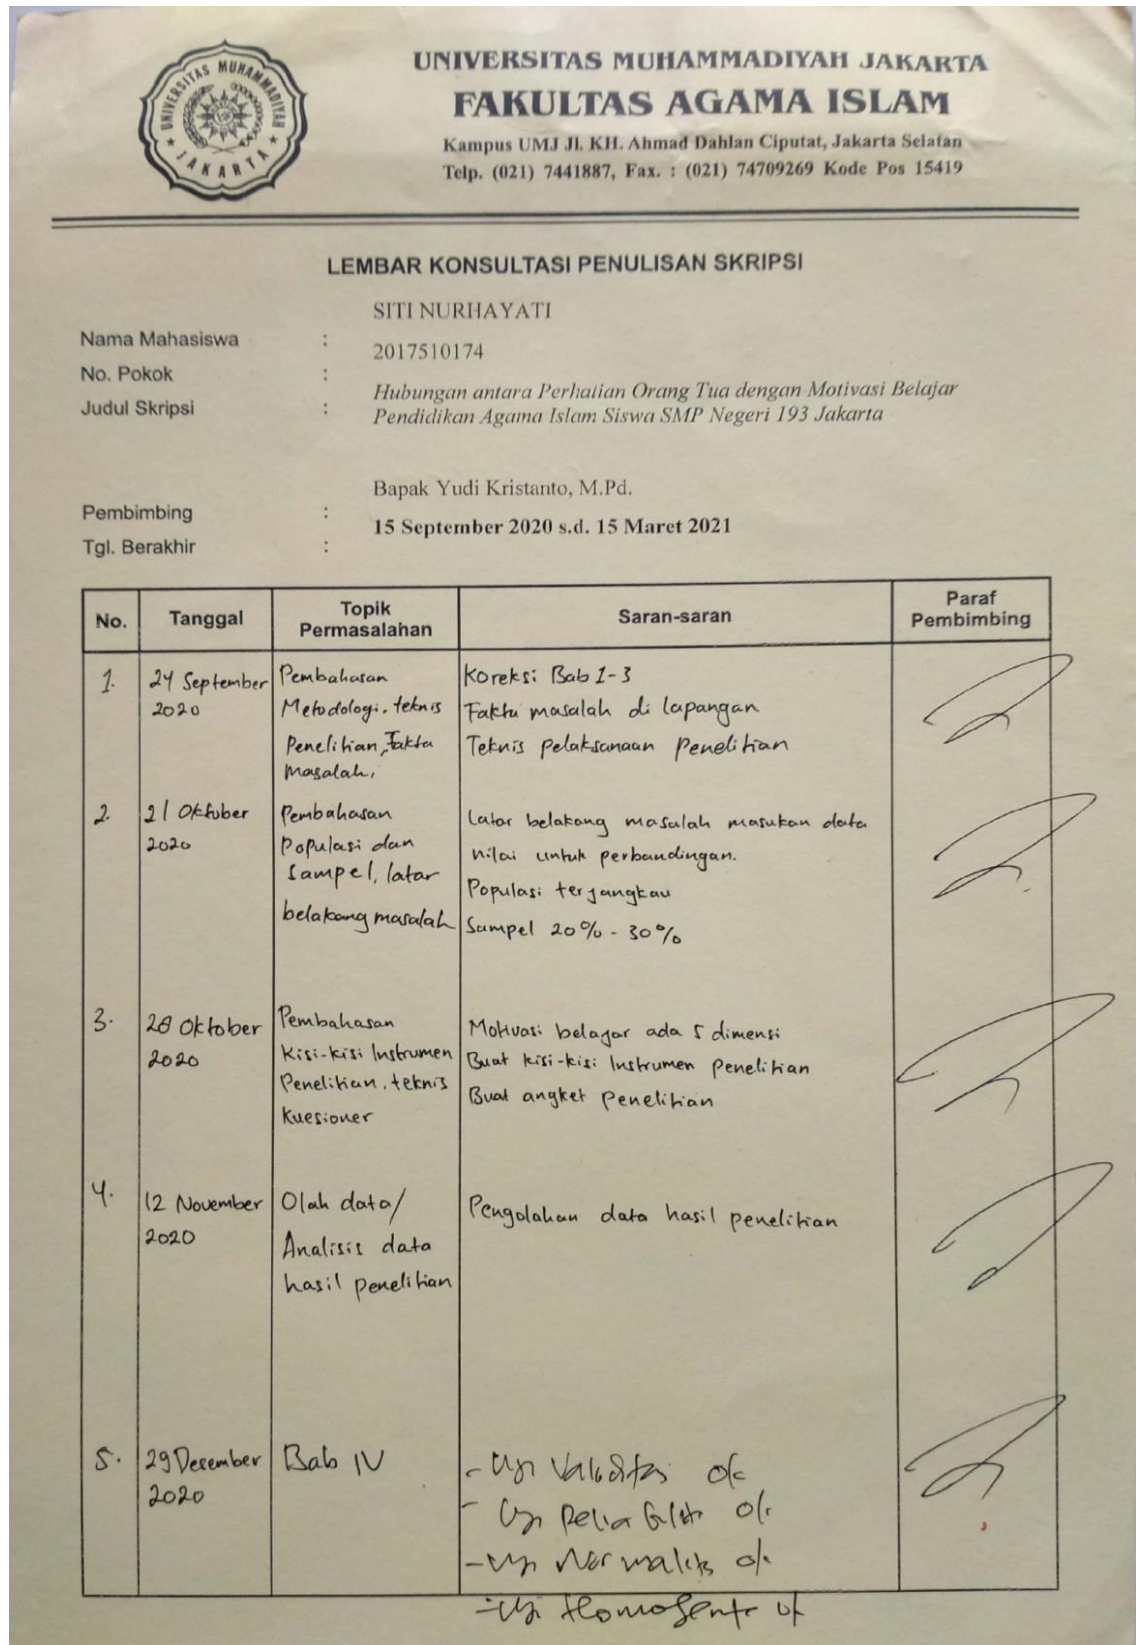 UNIVERSITAS MUHAMMADIYAH JAKARTA
UNIVERSITAS MUHAMMADIYAH JAKARTA
FAKULTAS AGAMA ISLAM
Kampus UMJ Jl. KH. Ahmad Dahlan Ciputat, Jakarta Selatan
Telp. (021) 7441887, Fax. : (021) 74709269 Kode Pos 15419
LEMBAR KONSULTASI PENULISAN SKRIPSI
SITI NURHAYATI
Nama Mahasiswa :
2017510174
No. Pokok :
Hubungan antara Perhatian Orang Tua dengan Motivasi Belajar
Judul Skripsi :
Pendidikan Agama Islam Siswa SMP Negeri 193 Jakarta
Bapak Yudi Kristanto, M.Pd.
Pembimbing :
15 September 2020 s.d. 15 Maret 2021
Tgl. Berakhir :
No.
Tanggal
Topik
Permasalahan
Saran-saran
Paraf
Pembimbing
1.
24 September
2020
Pembahasan
Metodologi, teknis
Penelitian, Fakta
Masalah,
Koreksi Bab 1-3
Fakta masalah di lapangan
Teknis pelaksanaan penelitian
2.
21 Oktober
2020
Pembahasan
Populasi dan
sampel, latar
belakang masalah
Latar belakang masalah masukan data
nilai untuk perbandingan.
Populasi terjangkau
Sampel 20% - 30%
3.
28 Oktober
2020
Pembahasan
Kisi-kisi Instrumen
Penelitian, teknis
Kuesioner
Motivasi belajar ada 5 dimensi
Buat kisi-kisi Instrumen penelitian
Buat angket penelitian
4.
12 November
2020
Olah data/
Analisis data
hasil penelitian
Pengolahan data hasil penelitian
5.
29 Desember
2020
Bab IV
- Uji Validitas ok
- Uji Reliabilitas ok
- Uji Normalits ok
- Uji Homogenits ok